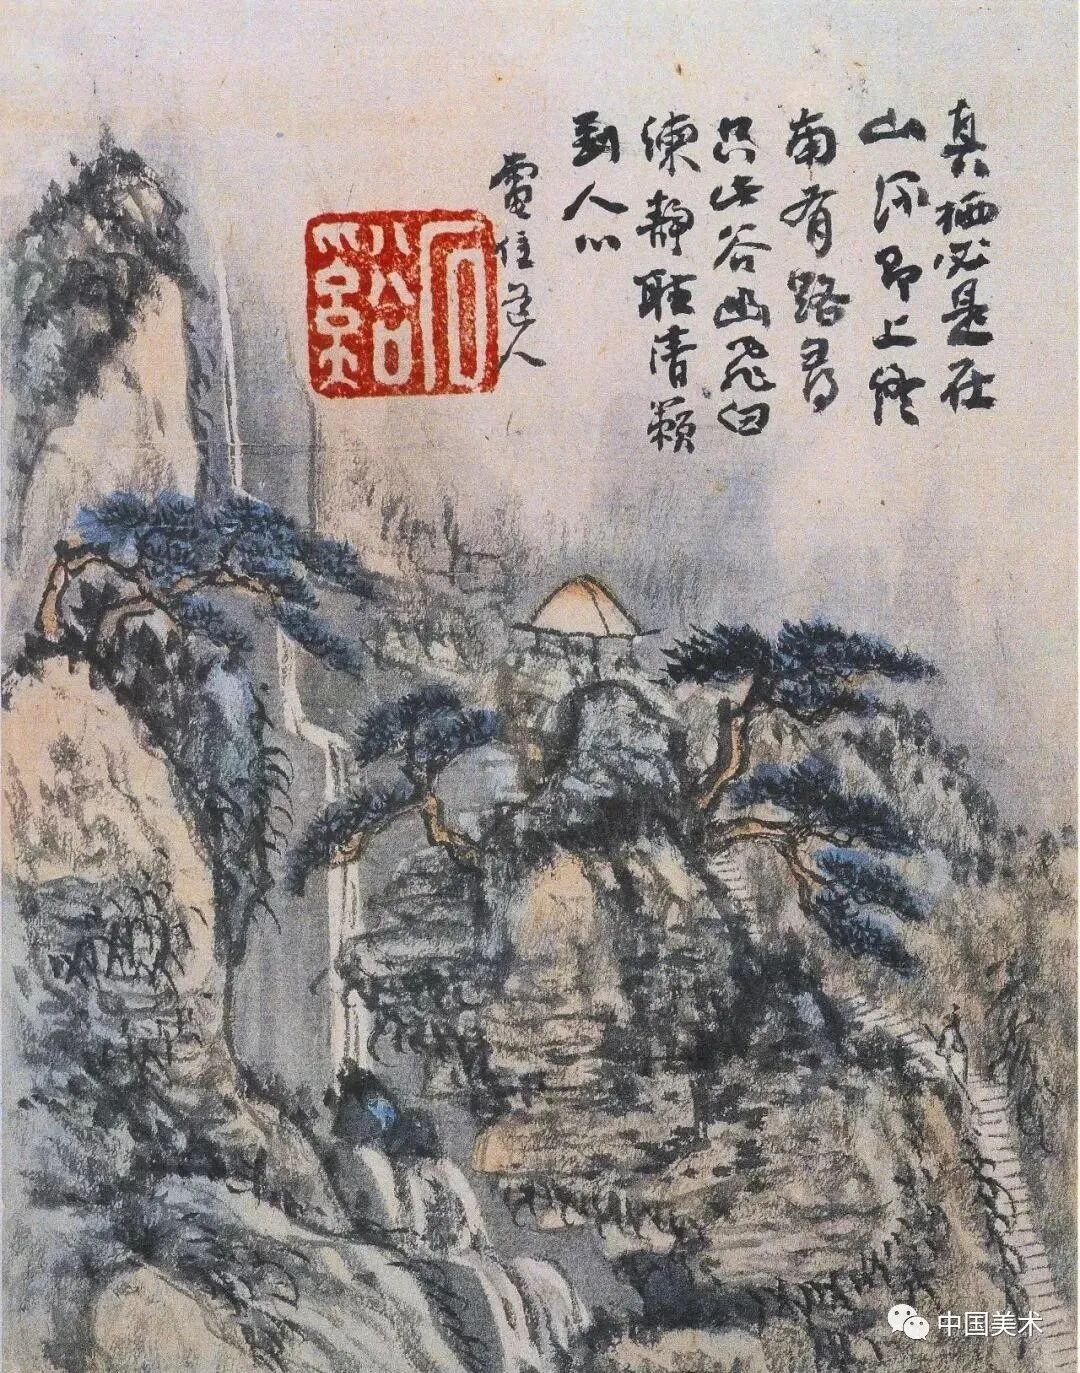 真栖必是在
山深即上終
南有路尋
只此谷幽飛白
練靜聽清籟
到人心
電住道人
石谿
中国美术